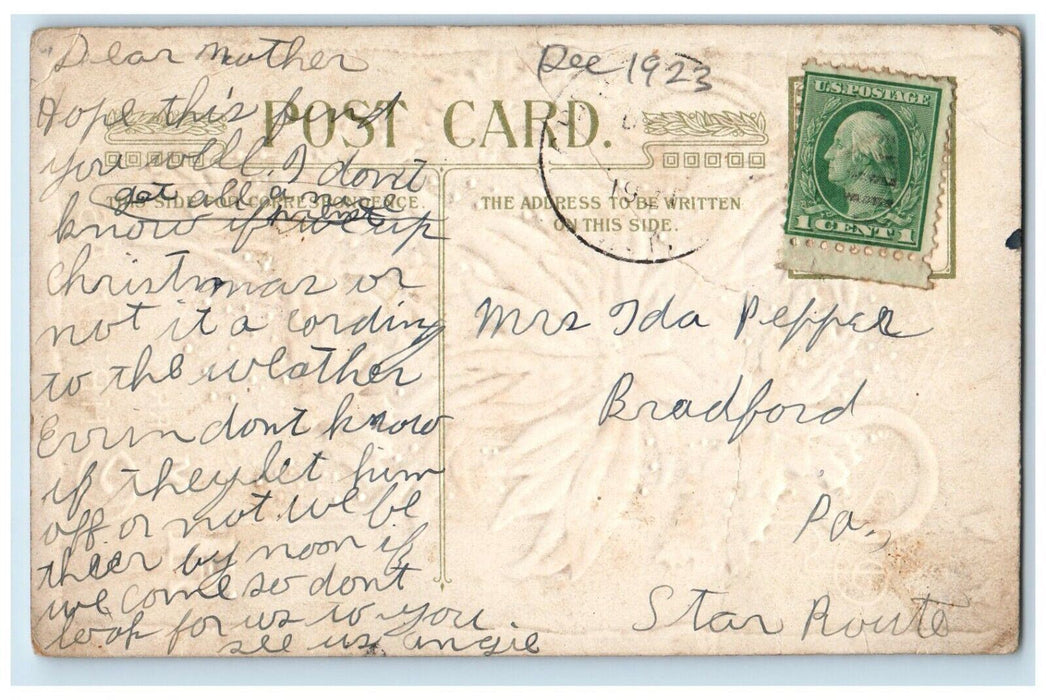 Dear Mother
Hope this find
you well. I don't
got all a
know if we up
Christmas or
not it a cording
to the weather
Ervin dont know
if they let him
off or not we be
theer by noon if
we come so dont
look for us to you
see us angie
Dec 1923
POST CARD.
THE SIDE FOR CORRESPONDENCE.
THE ADDRESS TO BE WRITTEN
ON THIS SIDE.
U.S. POSTAGE
1 CENT 1
Mrs Ida Pepper
Bradford
Pa,
Star Route